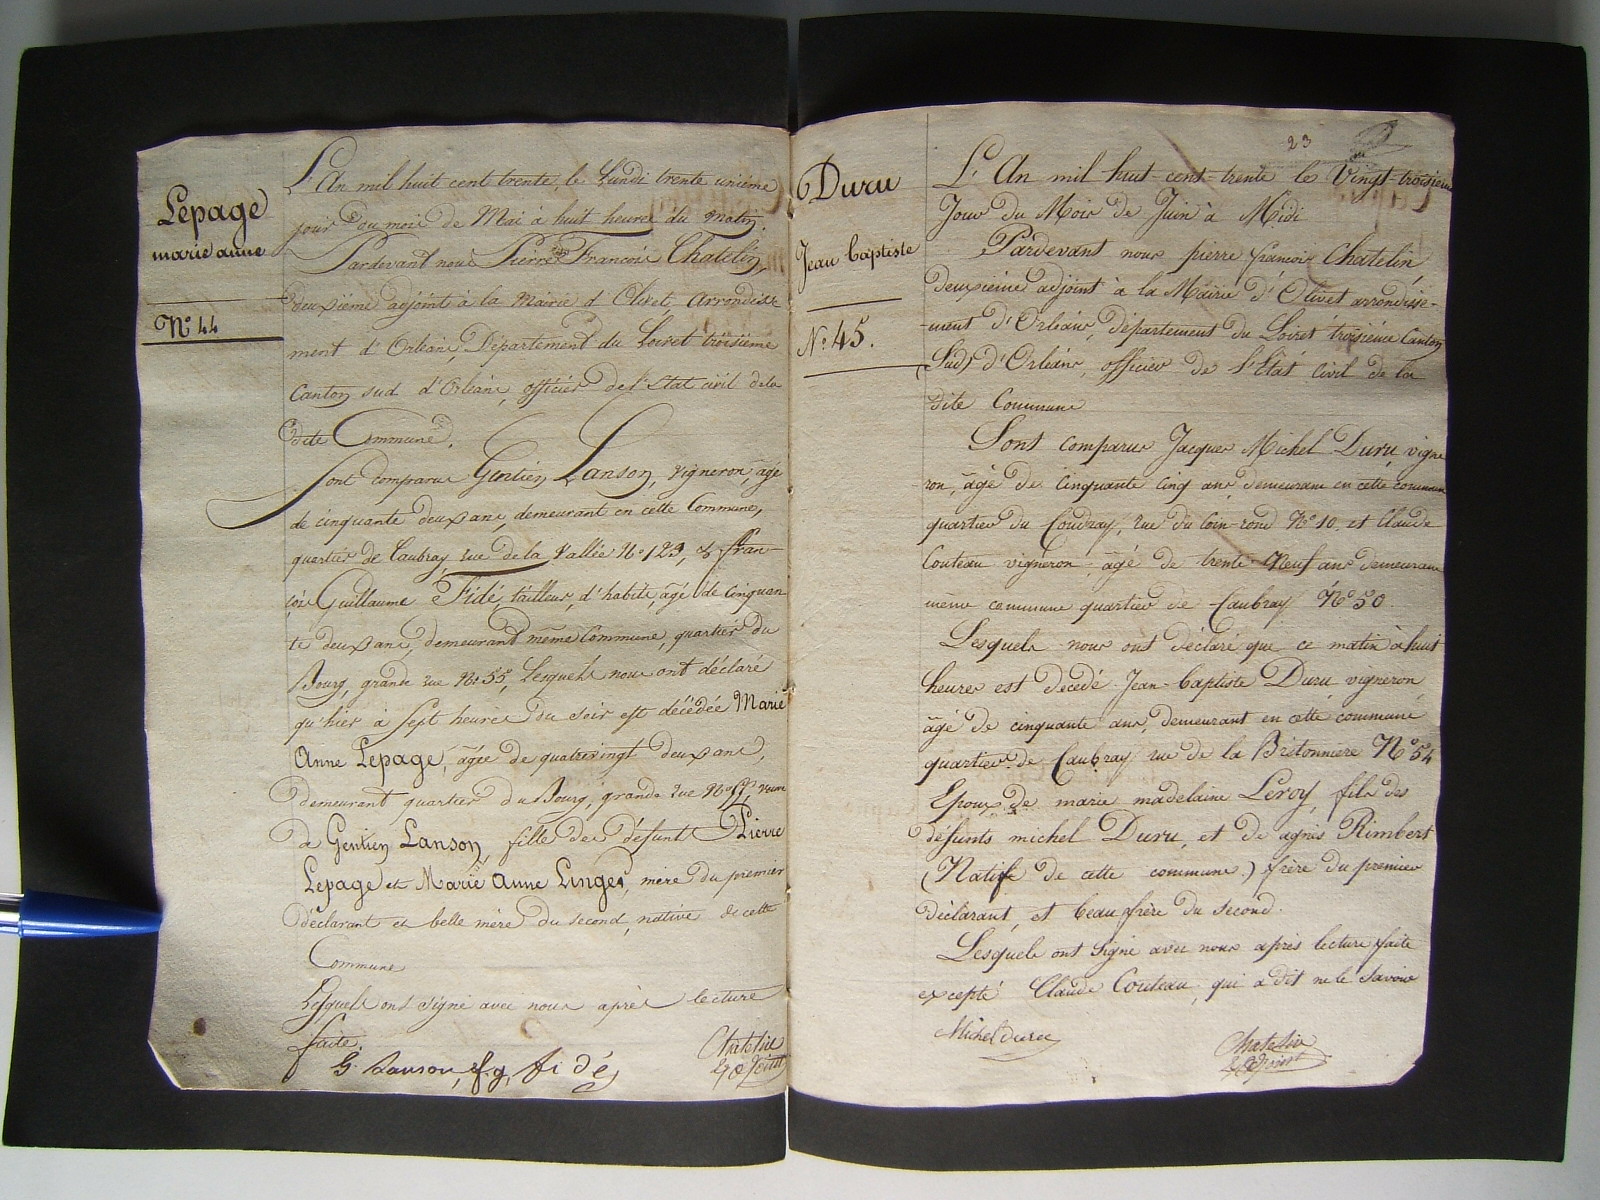 Lepage
marie anne
N° 44
L'An mil huit cent trente, le Lundi trente unième
jour du mois de Mai à huit heures du matin.
Pardevant nous Pierre François Chatelin,
deuxième adjoint à la Mairie d'Olivet, Arrondisse
ment d'Orléans, Département du Loiret troisième
Canton sud d'Orléans, officier de l'Etat civil de la
dite Commune.
Sont comparus Gentien Lanson, vigneron, âgé
de cinquante deux ans, demeurant en cette Commune,
quartier de Caubray, rue de la Vallée N° 123, & Fran-
çois Guillaume Fidé, tailleur, d'habits, âgé de cinquan
te deux ans, demeurant même Commune, quartier du
Bourg, grande rue N° 55, Lesquels nous ont déclaré
qu'hier à Sept heures du soir est décédée Marie
Anne Lepage, âgée de quatrevingt deux ans,
demeurant quartier du Bourg, grande rue N° veuve
de Gentien Lanson, fille des défunt Pierre
Lepage et Marie Anne Linger, mère du premier
déclarant et belle mère du second, native de cette
Commune
Lesquels ont signé avec nous après lecture
faite.
G. Lanson f. g. fidé
Chatelin
2e adjoint
23
Duru
Jean baptiste
N° 45.
L'An mil huit-cent-trente le Vingt-troisieme
Jour du Mois de Juin à Midi
Pardevant nous pierre francois Chatelin
deuxieme adjoint à la Mairie d'Olivet arrondisse-
-ment d'Orléans, département du Loiret troisième Canton
(Sud) d'Orléans, officier de l'Etat Civil de la
dite Commune
Sont comparus Jacques Michel Duru vigne
ron, âgé de Cinquante cinq ans, demeurant en cette commune
quartier du Coudray, rue du Coin-rond N° 10 et Claude
Couteau vigneron âgé de trente Neuf ans demeurant
même commune quartier de Caubray N° 50.
Lesquels nous ont déclaré que ce matin à huit
heures est decedé Jean-baptiste Duru vigneron
âgé de cinquante ans, demeurant en cette commune
quartier de Caubray rue de la Bretonniere N° 54
Epoux de marie madelaine Leroy, fils des
défunts michel Duru, et de agnès Rimbert
(Natife de cette commune) frère du premier
déclarant, et beau frère du second.
Lesquels ont signé avec nous après lecture faite
excepté Claude Couteau qui a dit ne le savoir
Michel duru
Chatelin
2e adjoint